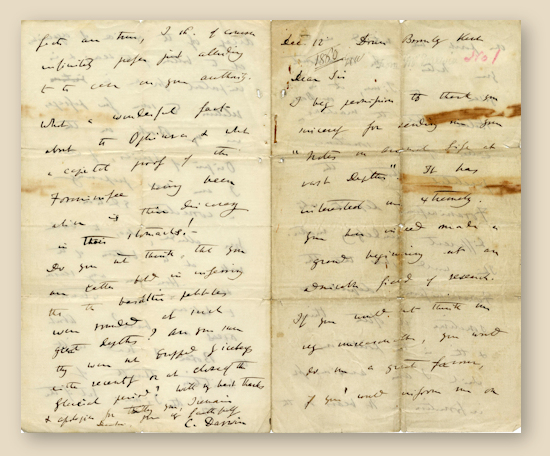 Dec. 12 Down Bromley Kent
No 1
Dear Sir
I beg permission to thank you
sincerely for sending me your
"Notes on animal life at
vast depths" It has
interested me extremely.
You have indeed made a
grand beginning at an
admirable field of research.
If you would not think me
very unreasonable, you would
do me a great favour,
if you would inform me on
facts are true, I sh. of course
infinitely prefer just alluding
to the case on your authority.
What a wonderful fact
about the Ophiuras, & what
a capital proof of the
Foraminifera having been
alive is their discovery
in their stomachs.—
Do you not think that you
are rather bold in inferring
that the basaltic pebbles
were rounded at such
great depths? are you sure
they were not dropped by icebergs
either recently or at close of the
glacial period? With my best thanks
& apologies for troubling you, I remain
Dear Sir Yours faithfully
C. Darwin